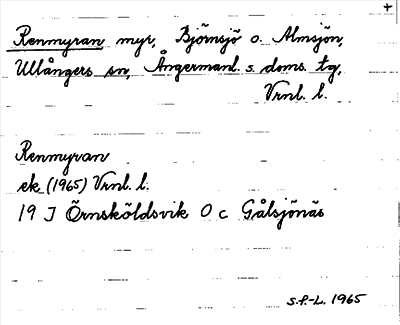 +
Renmyran, myr, Björnsjö o. Almsjön,
Ullångers sn, Ångermanl. s. doms. tg,
Vrnl. l.
Renmyran
ek (1965) Vrnl. l.
19 J Örnsköldsvik O c Gålsjönäs
S.F.-L. 1965